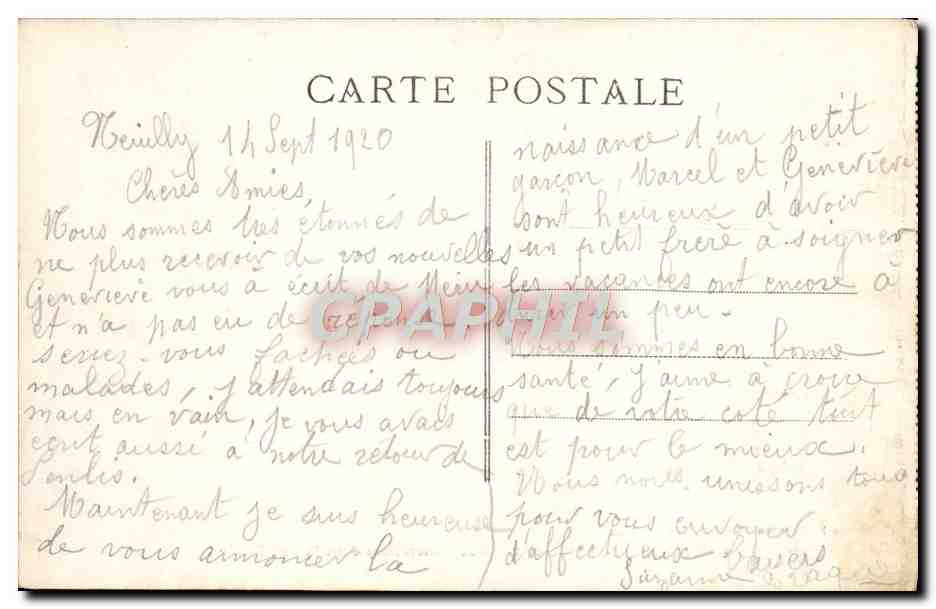 CARTE POSTALE
Neuilly 14 Sept 1920
Chères Amies,
Nous sommes très étonnés de
ne plus recevoir de vos nouvelles
Geneviève vous à écrit de
et n'a pas eu de réponse
seriez-vous fachées ou
malades, j'attendais toujours
mais en vain, je vous avais
écrit aussi à notre retour de
Senlis.
Maintenant je suis heureuse
de vous annoncer la
naissance d'un petit
garçon, Marcel et Geneviève
sont heureux d'avoir
un petit frère à soigner
les vacances ont encore à
durer un peu.
Nous sommes en bonne
santé, j'aime à croire
que de votre coté tout
est pour le mieux.
Nous nous unissons tous
pour vous envoyer
d'affectueux baisers
Suzanne
CPAPHIL